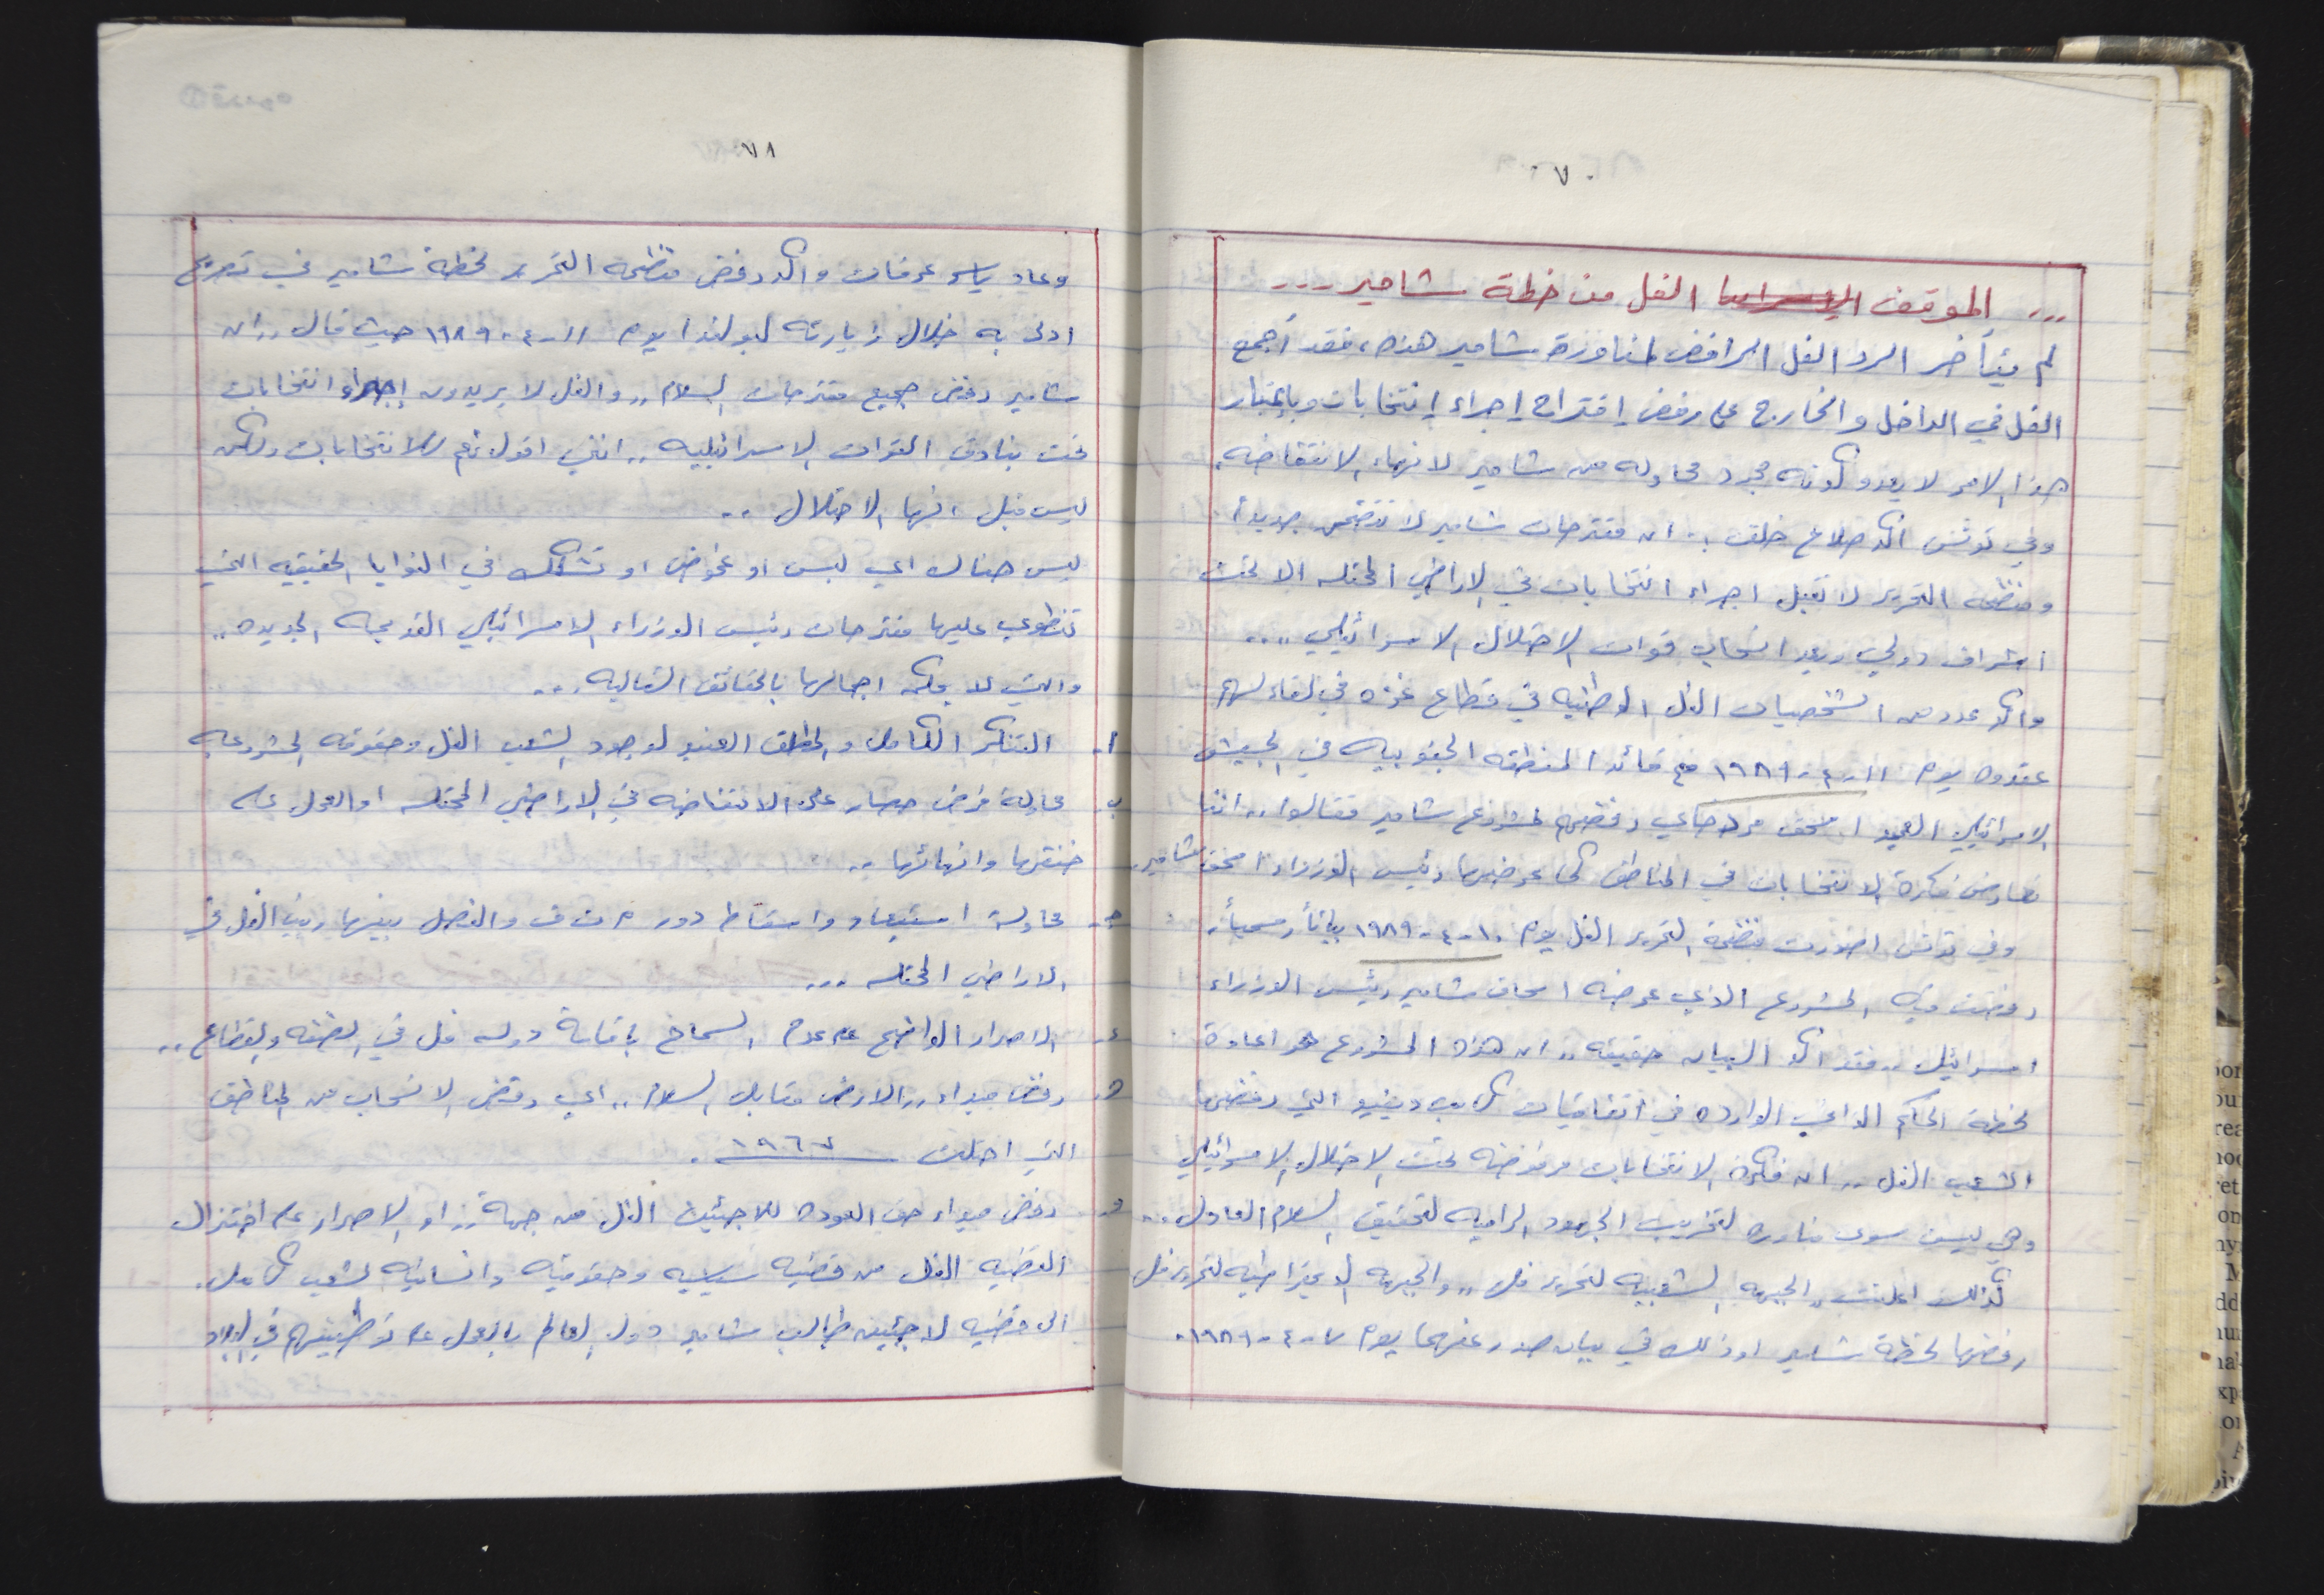 ٧٠
... الموقف الفل من خطة شامير ...
لم يتأخر الرد الفل الرافض لمناورة شامير هذه، فقد أجمع
الفل في الداخل والخارج على رفض إقتراح إجراء إنتخابات وبإعتبار
هذا الامر لا يعدو كونه مجرد محاوله من شامير لانهاء الانتفاضه.
وفي تونس اكد صلاح خلف: ان مقترحات شامير لا تتضمن جديداً
ومنظمه التحرير لا تقبل اجراء انتخابات في الاراضي المحتله الا تحت
اشراف دولي وبعد انسحاب قوات الاحتلال الاسرائيلي ....
واكد عدد من الشخصيات الفل الوطنيه في قطاع غزه في لقاء لهم
عقدوه يوم ١١-٤-١٩٨٩ مع قائد المنطقه الجنوبيه في الجيش
الاسرائيلي العميد إسحق مردخاي رفضهم لمشروع شامير فقالوا ,, اننا
نعارض فكرة الانتخابات في المناطق كما عرضها رئيس الوزراء اسحق شامير.
وفي تونس اصدرت منظمة التحرير الفل يوم ١٠-٤-١٩٨٩ بياناً رسمياً
رفضت فيه المشروع الذي عرضه اسحاق شامير رئيس الوزراء
اسرائيل .. فقد اكد البيان حقيقه ,, ان هذا المشروع هو اعادة
لخطة الحكم الذاتي الوارده في اتفاقيات كامب ديفيد التي رفضها
الشعب الفل ,, ان فكرة الانتخابات مرفوضه تحت الاحتلال الاسرائيلي
وهي ليست سوى مناوره لتخريب الجهود الراميه لتحقيق السلام العادل ...
كذالك اعلنت ,, الجبهه الشعبيه لتحرير فل ,, والجبهه الديمقراطيه لتحرير فل
رفضها لخطة شامير وذلك في بيان صدر عنهما يوم ٧-٤-١٩٨٩.
٧١
وعاد ياسر عرفات واكد رفض منظمه التحرير لخطة شامير في تصريح
ادلى به خلال زيارته لبولندا يوم ١١-٤-١٩٨٩ حيث قال ,, ان
شامير رفض جميع مقترحات السلام ,, والفل لا يريدون إجراء انتخابات
تحت بنادق القوات الاسرائيليه ,, انني اقول نعم للانتخابات ولكن
ليس قبل انهاء الاحتلال ..
ليس هناك اي لبس او غموض او تشكك في النوايا الحقيقيه التي
تنطوي عليها مقترحات رئيس الوزراء الاسرائيلي القديمه الجديده ..
والتي يمكن اجمالها بالحقائق التاليه ...
أ. التنكر الكامل والمطلق العنيد لوجود الشعب الفل وحقوقه المشروعه
ب. محاولة فرض حصار على الانتفاضه في الاراضي المحتله او العمل على
خنقها وانهائها ..
ج. محاولة استبعاد واسقاط دور م ت ف والفصل بينها وبين الفل في
الاراضي المحتله ...
د. الاصرار الواضح على عدم السماح باقامة دوله فل في الضفه والقطاع ..
ه. رفض مبداء ,, الارض مقابل السلام ,, اي رفض الانسحاب من المناطق
التي احتلت ١٩٦٧.
و. رفض مبداء حق العوده للاجئين الفل من جهة ,, او الاصرار على اختزال
القضيه الفل من قضيه سياسيه وحقوقيه وانسانيه لشعب كامل.
الى قضيه لاجئين طالب شامير دول العالم بالعمل على توطينهم في